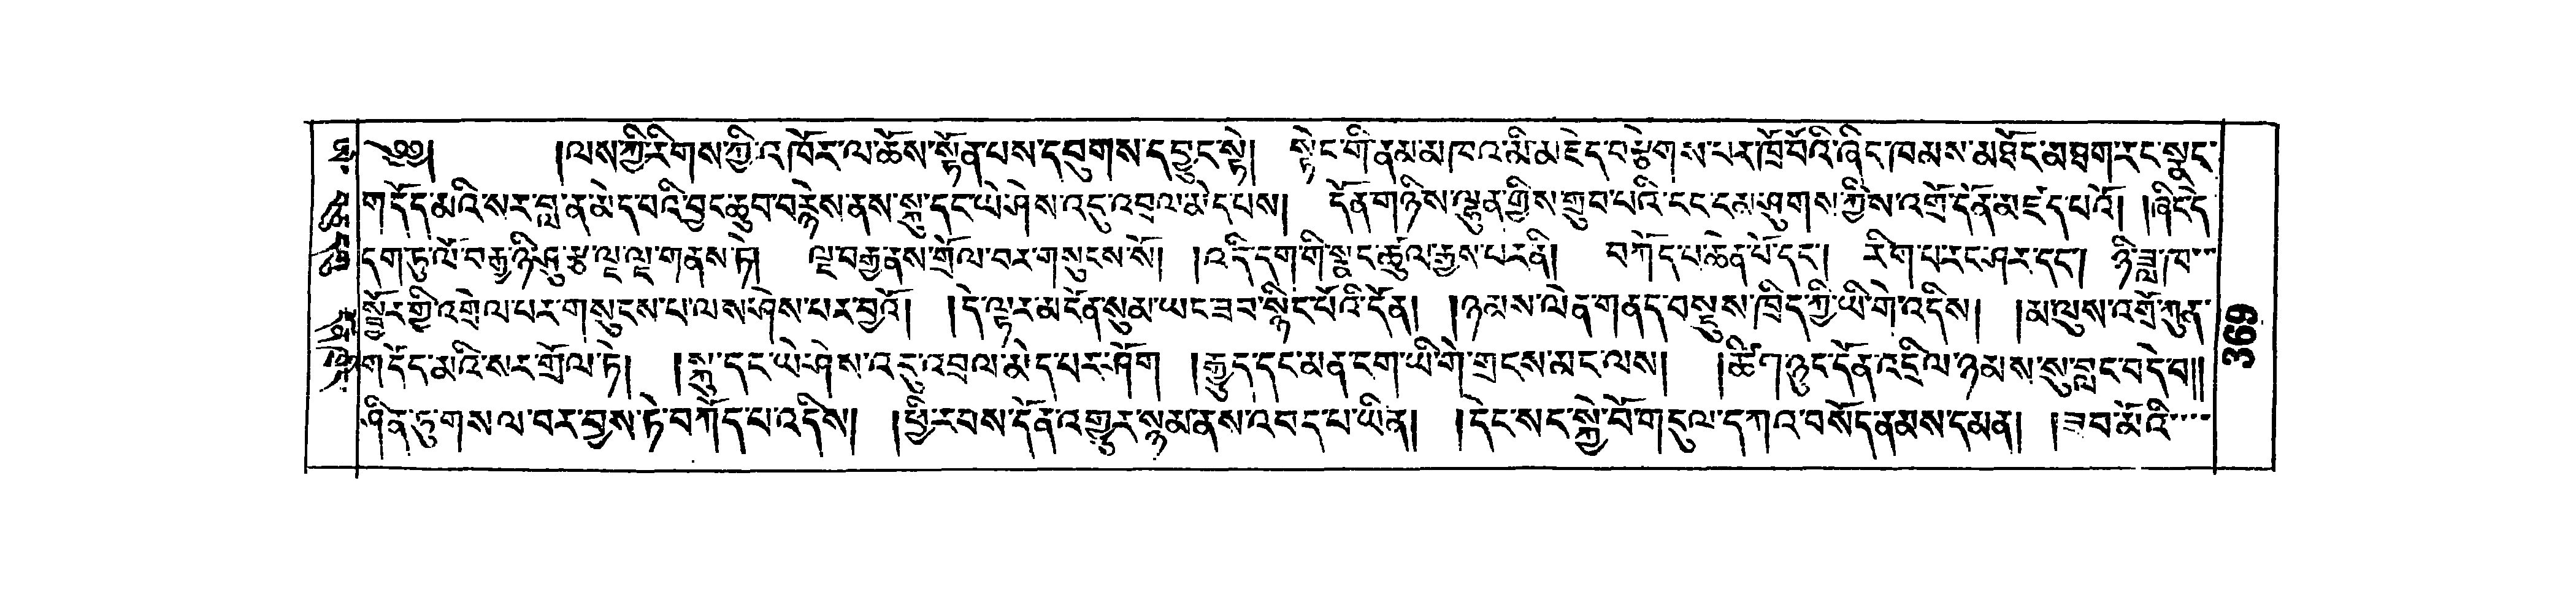 ༄༅། །ལས་ཀྱི་རིགས་ཀྱི་འཁོར་ལ་ཆོས་སྟོན་པས་དབུགས་དབྱུང་སྟེ། སྟེང་གི་ནམ་མཁའ་མི་མཇེད་བརྩེགས་པར་ཁྲོ་བོའི་ཞིང་ཁམས་མཐོང་མཐག་རང་སྣང་
གདོད་མའི་སར་བླ་ན་མེད་པའི་བྱང་ཆུབ་བརྙེས་ནས་སྐུ་དང་ཡེ་ཤེས་འདུ་འབྲལ་མེད་པས། དོན་གཉིས་ལྷུན་གྱིས་གྲུབ་པའི་ངང་དམ་ཤུགས་ཀྱིས་འགྲོ་དོན་མཛད་པའོ། །ཞིང་དེ་
དག་ཏུ་ལོ་བརྒྱ་ཉི་ཤུ་རྩ་ལྔ་ལྔ་གནས་ཏེ། ལྔ་བརྒྱ་ནས་གྲོལ་བར་གསུངས་སོ། །འདི་དག་གི་སྣང་ཚུལ་རྒྱས་པར་ནི། བཀོད་པ་ཆེན་པོ་དང་། རིག་པ་རང་ཤར་དང་། ཉི་ཟླ་ཁ་
སྦྱོར་གྱི་འགྲེལ་པར་གསུངས་པ་ལས་ཤེས་པར་བྱའོ། །དེ་ལྟར་མངོན་སུམ་ཡང་ཟབ་སྙིང་པོའི་དོན། །ཉམས་ལེན་གནད་བསྡུས་ཁྲིད་ཀྱི་ཡི་གེ་འདིས། །མ་ལུས་འགྲོ་ཀུན་
གདོད་མའི་སར་གྲོལ་ཏེ། །སྐུ་དང་ཡེ་ཤེས་འདུ་འབྲལ་མེད་པར་ཤོག །རྒྱུད་དང་མན་ངག་ཡི་གེ་གྲངས་མང་ལས། །ཚིག་ཉུང་དོན་འདྲིལ་ཉམས་སུ་བླང་བདེ་བ།།
ཤིན་ཏུ་གསལ་བར་བྱས་ཏེ་བཀོད་པ་འདིས། །ཕྱི་རབས་དོན་འགྱུར་སྙམ་ནས་འབད་པ་ཡིན། །དེང་སང་སྐྱེ་བོ་གདུལ་དཀའ་བསོད་ནམས་དམན། །ཟབ་མོའི་
༡༧༣